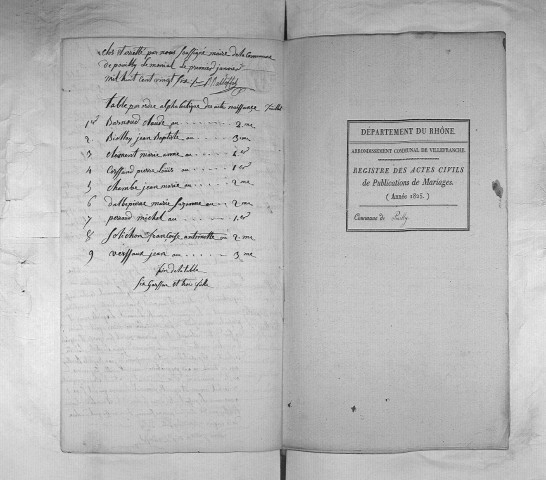 clos et arretté par nous soussigné maire de la Commune
de pouilly le monial le premier janvier
mil huit cent vingt
table par ordre alphabétique des actes naissance feuillet
1er Barnoud claude au . . . . . . 2 me
2 Biolley jean Baptiste au . . . . . 3 me
3 clement marie anne au . . . . 1er
4 Corsand pierre louis au . . . . 1er
5 chambe jean marie au . . . . 2 me
6 dalbepierre marie suzanne au . . . 2 me
7 peraud michel au . . . . . 1er
8 Solichon françoise antoinette au 2 me
9 versaux jean au . . . . . 3 me
fin de la table
six Garson et trois fille
DÉPARTEMENT DU RHÔNE.
ARRONDISSEMENT COMMUNAL DE VILLEFRANCHE.
REGISTRE DES ACTES CIVILS
de Publications de Mariages.
( Année 1825. )
Commune de Pouilly